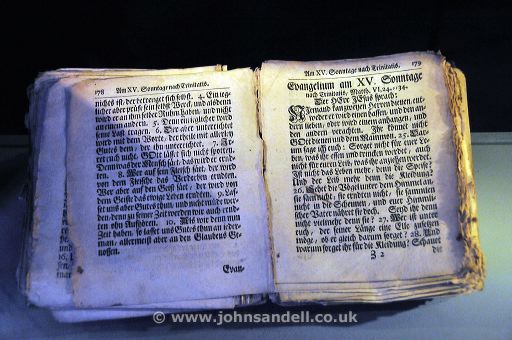 178 Am XV. Sonntage nach Trinitatis.
nichts ist, der betreuget sich selbst. 4. Ein jeg-
licher aber prüfe sein selbst Werck, und alsdenn
wird er an ihm selber Ruhm haben, und nicht
an einem andern. 5. Denn ein jeglicher wird
seine Last tragen. 6. Der aber unterrichtet
wird mit dem Worte, der theile mit allerley
Gutes dem, der ihn unterrichtet. 7. Irret
euch nicht, GOtt läßet sich nicht spotten.
Denn was der Mensch säet, das wird er ernd-
ten. 8. Wer auf sein Fleisch säet, der wird
von dem Fleische das Verderben erndten.
Wer aber auf den Geist säet, der wird von
dem Geiste das ewige Leben erndten. 9. Laß-
set uns aber Gutes thun, und nicht müde wer-
den, denn zu seiner Zeit werden wir auch ernd-
ten ohn Aufhören. 10. Als wir denn nun
Zeit haben, so lasset uns Gutes thun an jeder-
man, allermeist aber an des Glaubens Ge-
nossen.
Evan-
Am XV. Sonntage nach Trinitatis. 179
Evangelium am XV. Sonntage
nach Trinitatis, Matth. VI, 24.-34.
Der HErr JEsus sprach:
Niemand kan zweyen Herren dienen, ent-
weder er wird einen hassen, und den an-
dern lieben, oder wird einem anhangen, und
den andern verachten. Ihr könnet nicht
GOtt dienen und dem Mammon. 25. Dar-
um sage ich euch: Sorget nicht für euer Le-
ben, was ihr essen und trincken werdet, auch
nicht für euren Leib, was ihr anziehen werdet.
Ist nicht das Leben mehr, denn die Speise?
Und der Leib mehr denn die Kleidung?
26. Sehet die Vögel unter dem Himmel an,
sie säen nicht, sie erndten nicht, sie sammlen
nicht in die Scheunen, und euer Himmli-
scher Vater nähret sie doch. Seyd ihr denn
nicht vielmehr denn sie? 27. Wer ist unter
euch, der seiner Länge eine Elle zusetzen
möge, ob er gleich darum sorget? 28. Und
warum sorget ihr für die Kleidung? Schauet
3 2 die
© www.johnsandell.co.uk